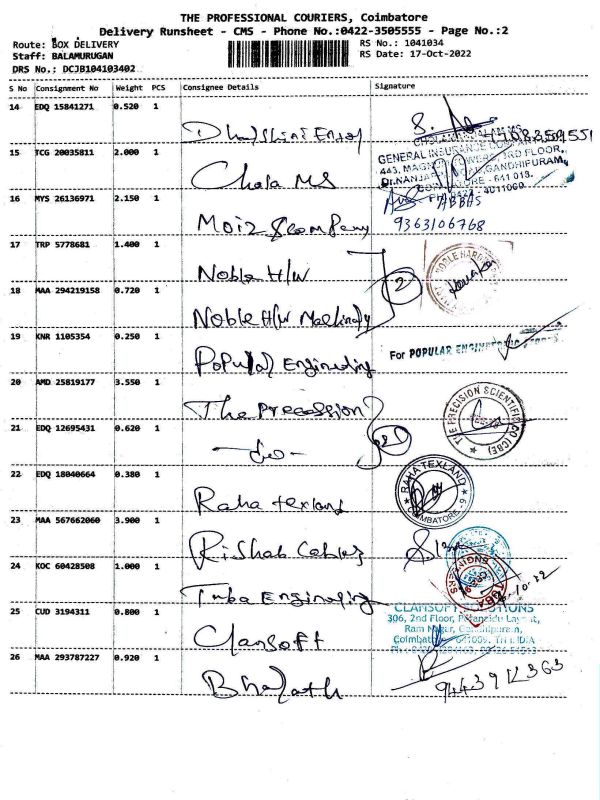 THE PROFESSIONAL COURIERS, Coimbatore
Delivery Runsheet - CMS - Phone No.:0422-3505555 - Page No.:2
Route: BOX DELIVERY RS No.: 1041034
Staff: BALAMURUGAN RS Date: 17-Oct-2022
DRS No.: DCJB104103402
S No Consignment No Weight PCS Consignee Details Signature
14 EDQ 15841271 0.520 1
15 TCG 20035811 2.000 1 Chola MS
GENERAL INSURANCE COMPANY
16 MYS 26136971 2.150 1 Moiz & Company ABBAS
9363106768
17 TRP 5778681 1.400 1 Noble H/W
18 MAA 294219158 0.720 1 Noble H/W Machinery 2
19 KNR 1105354 0.250 1 Popular Engineering For POPULAR
20 AMD 25819177 3.550 1 The Precession THE PRECISION SCIENTIFIC CO (CBE)
21 EDQ 12695431 0.620 1 -do-
22 EDQ 18040664 0.380 1 Raha texland RAHA TEXLAND COIMBATORE
23 MAA 567662060 3.900 1 Rishab Cables
24 KOC 60428508 1.000 1 Tuba Engineering
25 CUD 3194311 0.800 1 Clansoft CLANSOFT SOLUTIONS
306, 2nd Floor,
26 MAA 293787227 0.920 1 Bharath